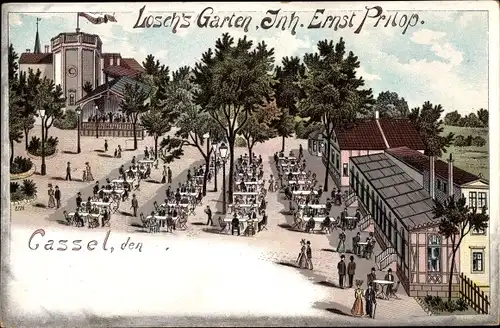 Losch's Garten, Inh. Ernst Pritop.
Cassel, den